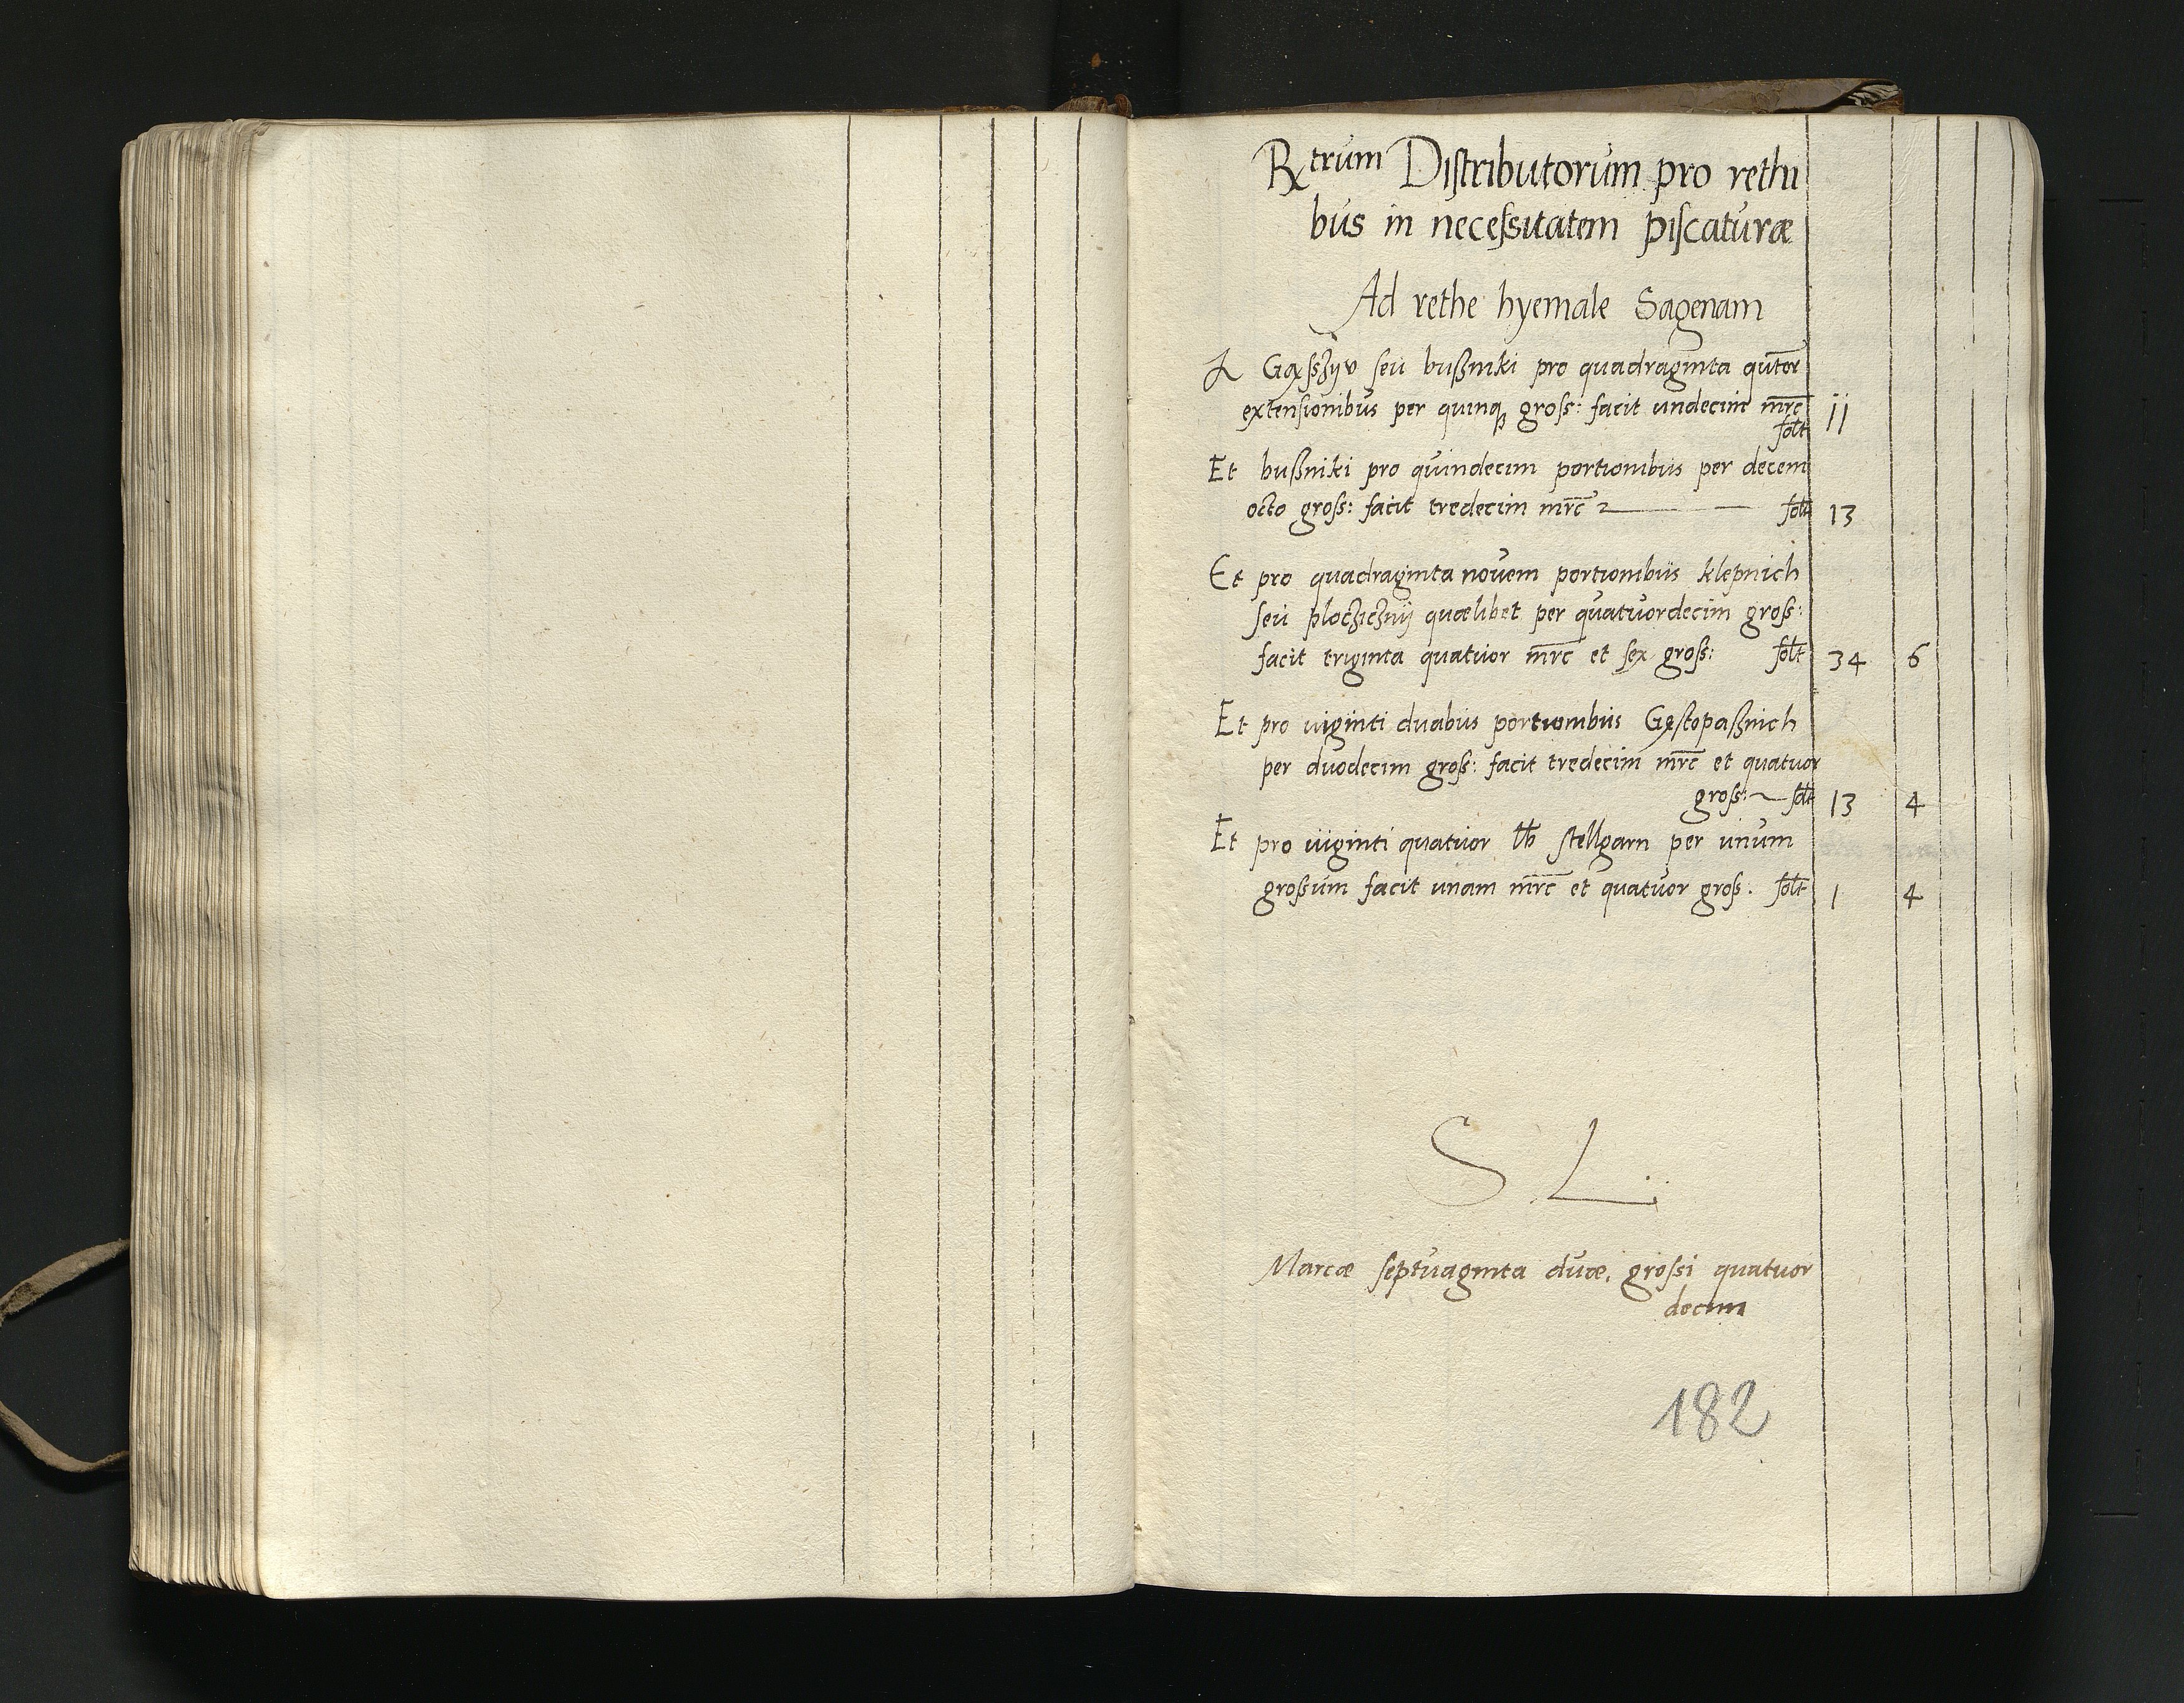 Rxtrum Distributorum pro rethi
bus in necessitatem piscaturæ
Ad rethe hyemale Sagenam
seu bußniki pro quadraginta qutor
extensionibus per quinqʒ gross: facit undecim mrc̄ solt 11
Et bußniki pro quindecim portionibus per decem
octo gross: facit tredecim mrc̄ solt 13
Et pro quadraginta novem portionibus klepnich
seu plocziczny quælibet per quatuordecim gross:
facit triginta quatuor mrc̄ et sex gross: solt 34 6
Et pro viginti duabus portionibus Gęstopaßnich
per duodecim gross: facit tredecim mrc̄ et quatuor
gross: solt 13 4
Et pro viginti quatuor lb stellgarn per unum
grossum facit unam mrc̄ et quatuor gross. solt 1 4
S L.
Marcæ septuaginta duæ, grossi quatuor
decim
182